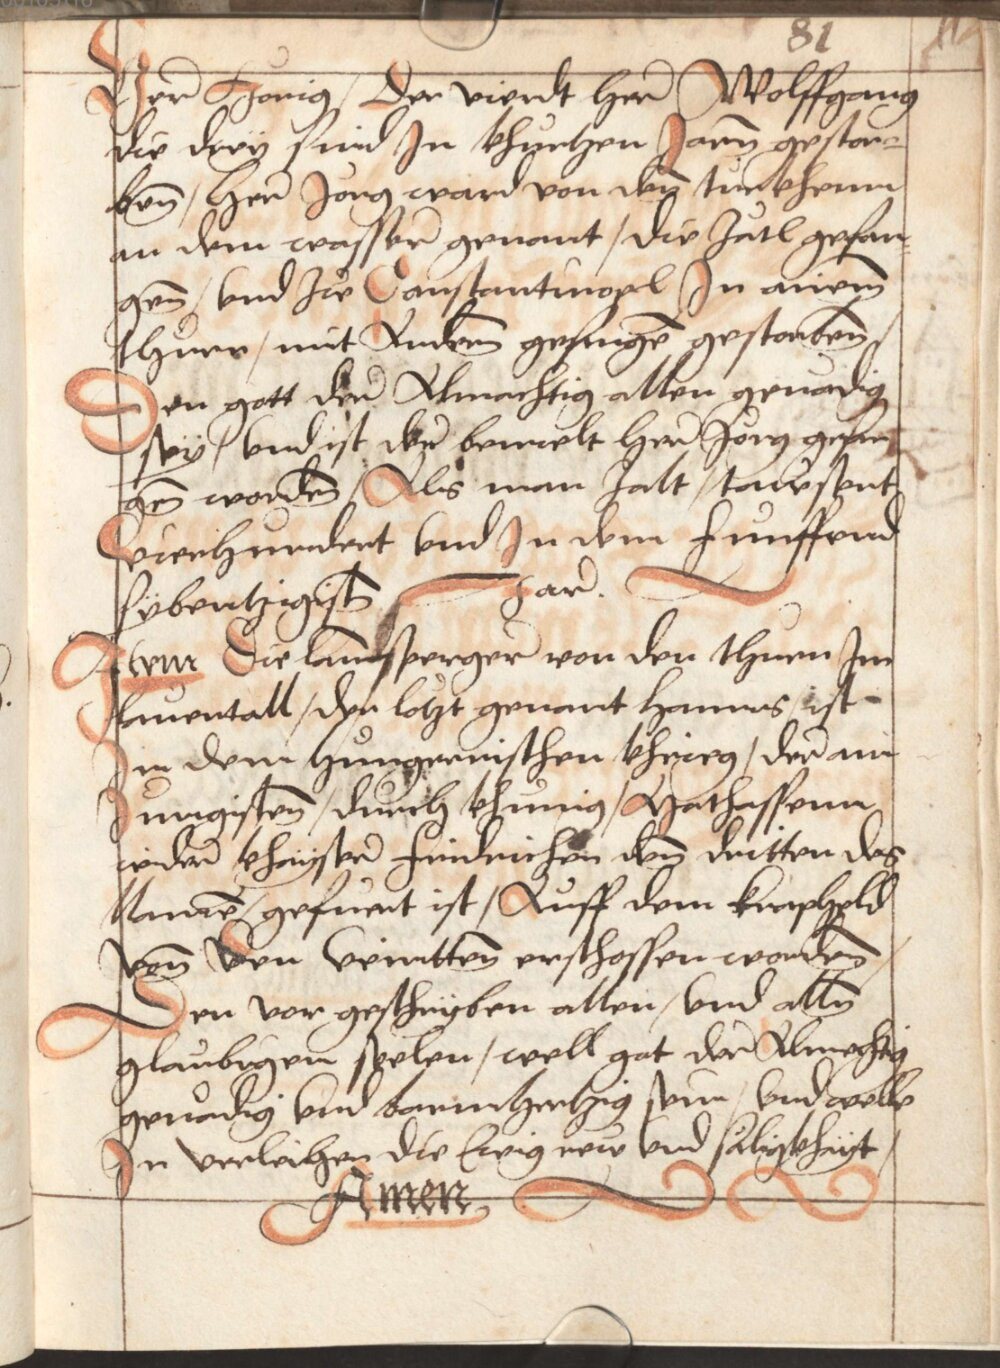 81
Herr Jorig / Der vierdt her Wolffganng
die dreÿ sind In khurtzen Jarn gestor=
ben / Her Jorg ward von den turkhenn
an dem wasser genant / die Satl gefan=
gen / vnd zu Constantinopl In ainem
thurn / mit Andern gefangen gestorben /
Den gott der Almachtig allen genadig
seÿ / vnd ist der bemelt her Jorg gefan
gen worden / Als man zalt / tausent
Vierhundert vnd In dem Funffvnd
sÿbentzigisten Jar.
Item Die lannsperger von den thurn Im
lauentall / der lotzt genant Hanns / ist
In dem hungerrischen khrieg / der am
Jungisten / durch khunig / Mathassenn
wider khaÿser Fridrichen den dritten des
Namen / gefuert ist / Auff dem krapfeld
von den veindten erschossen worden /
Den vor geschriben allen / vnd allen
glaubigen seelen / well got der Almechtig
genadig vnd barmhertzig sein / vnd welle
In verleichen die Ewig rue vnd saligkhait /
Amen